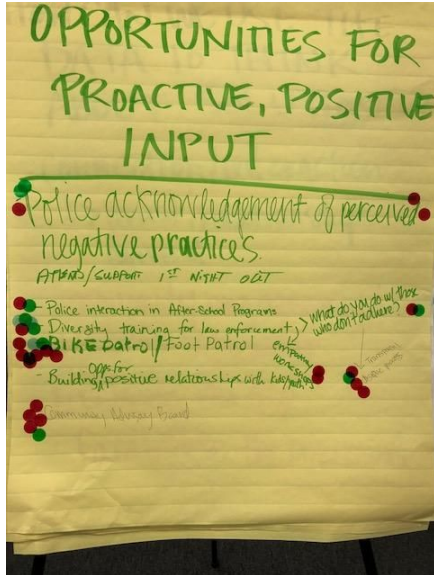 OPPORTUNITIES FOR
PROACTIVE, POSITIVE
INPUT
Police acknowledgement of perceived
negative practices.
ATTEND/SUPPORT 1ST NIGHT OUT
- Police interaction in After-School Programs
- Diversity training for law enforcement,
> what do you do w/ those
who don't adhere?
- BIKE Patrol/Foot Patrol
empathy
workshops
opps for
- Building positive relationships with kids/youth
Community Advisory Board